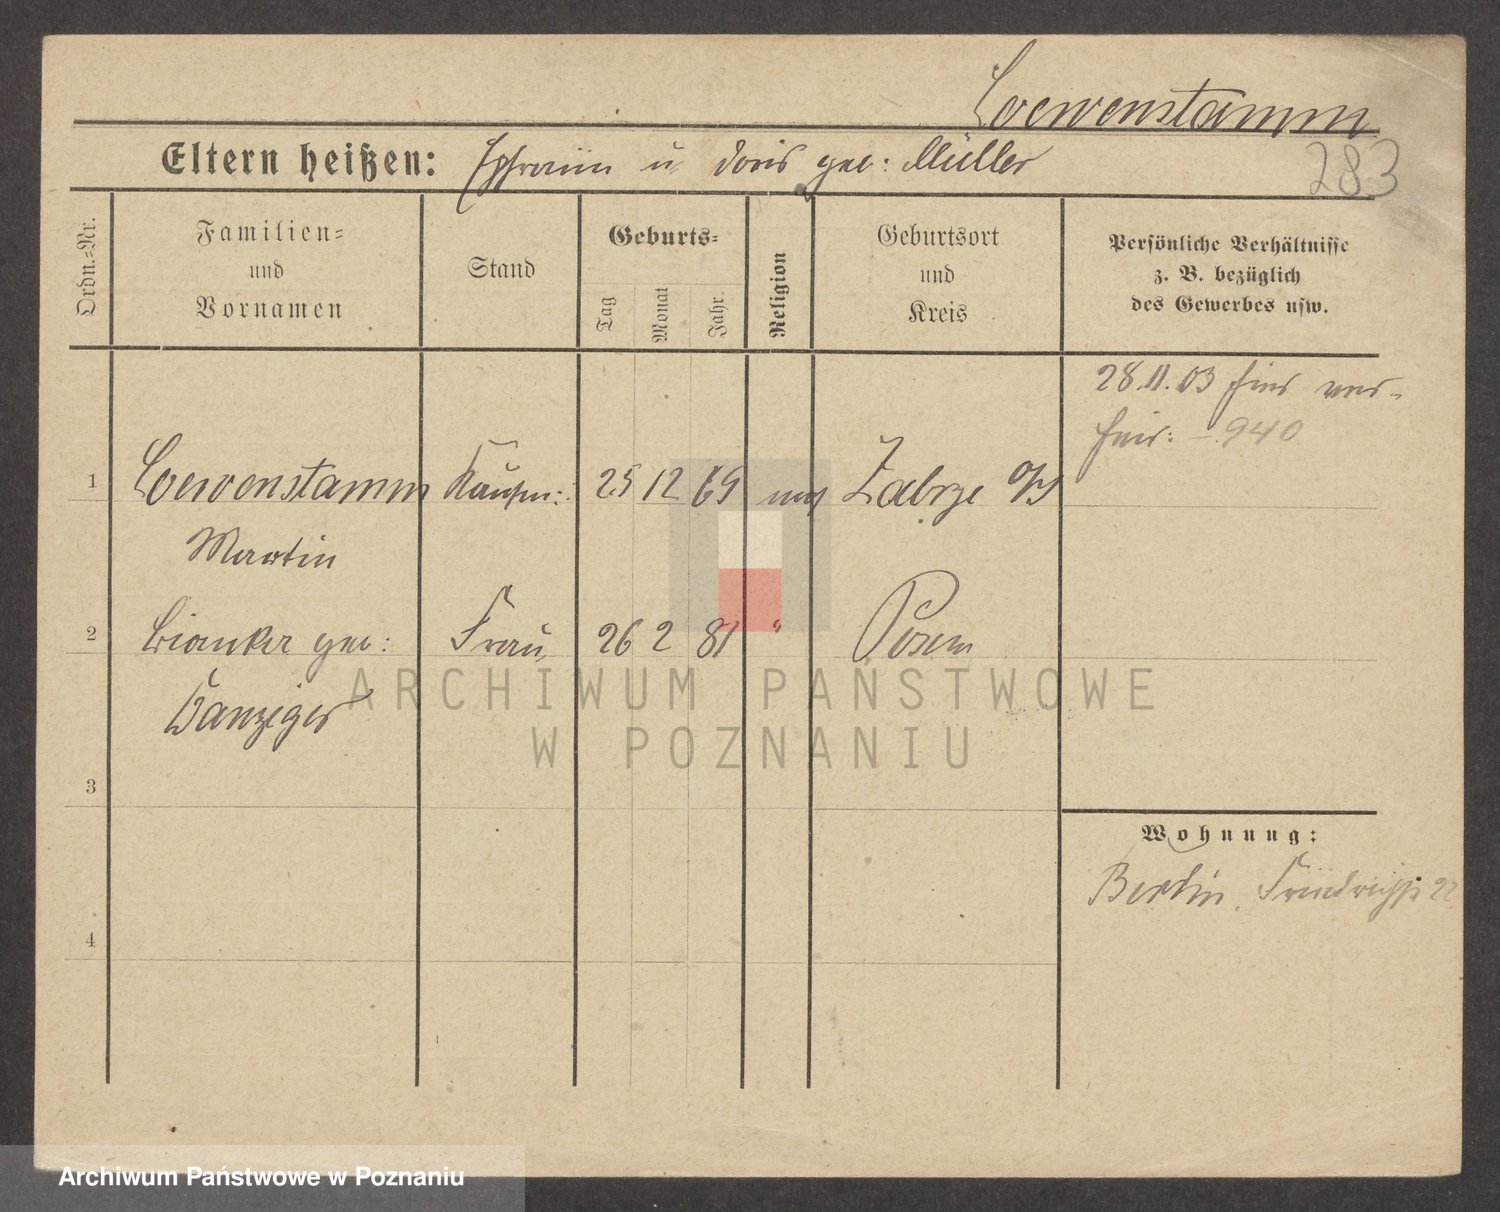 Loewenstamm
Eltern heißen: Ephraim u. Doris geb: Müller
283
Ordn.-Nr.
Familien-
und
Vornamen
Stand
Geburts-
Tag
Monat
Jahr.
Religion
Geburtsort
und
Kreis
Persönliche Verhältnisse
z. B. bezüglich
des Gewerbes usw.
28.11.03 hier
940
1 Loewenstamm Kaufm: 25 12 69 mos Zabrze O/S
Martin
2 Bianka geb: Frau 26 2 81 " Posen
Danziger
3
4
Wohnung:
Berlin, Friedrichstr 22
ARCHIWUM PAŃSTWOWE
W POZNANIU
Archiwum Państwowe w Poznaniu